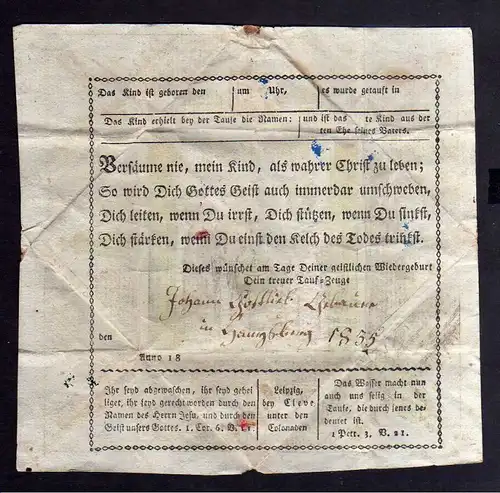 Das Kind ist geboren den um Uhr, es wurde getauft in
Das Kind erhielt bey der Taufe die Namen: und ist das te Kind aus der
ten Ehe seines Vaters.
Versäume nie, mein Kind, als wahrer Christ zu leben;
So wird Dich Gottes Geist auch immerdar umschweben,
Dich leiten, wenn Du irrst, Dich stützen, wenn Du sinkst,
Dich stärken, wenn Du einst den Kelch des Todes trinkst.
Dieses wünschet am Tage Deiner geistlichen Wiedergeburt
Dein treuer Tauf-Zeuge
Johann Gottlieb
in 1835
den
Anno 18
Ihr seyd abgewaschen, ihr seyd gehei
liget, ihr seyd gerecht worden durch den
Namen des Herrn Jesu, und durch den
Geist unsers Gottes. 1. Cor. 6. V. 11.
Leipzig,
bey Cleve
unter den
Colonaden
Das Wasser macht nun
auch uns selig in der
Taufe, die durch jenes be-
deutet ist.
1 Pett. 3. V. 21.